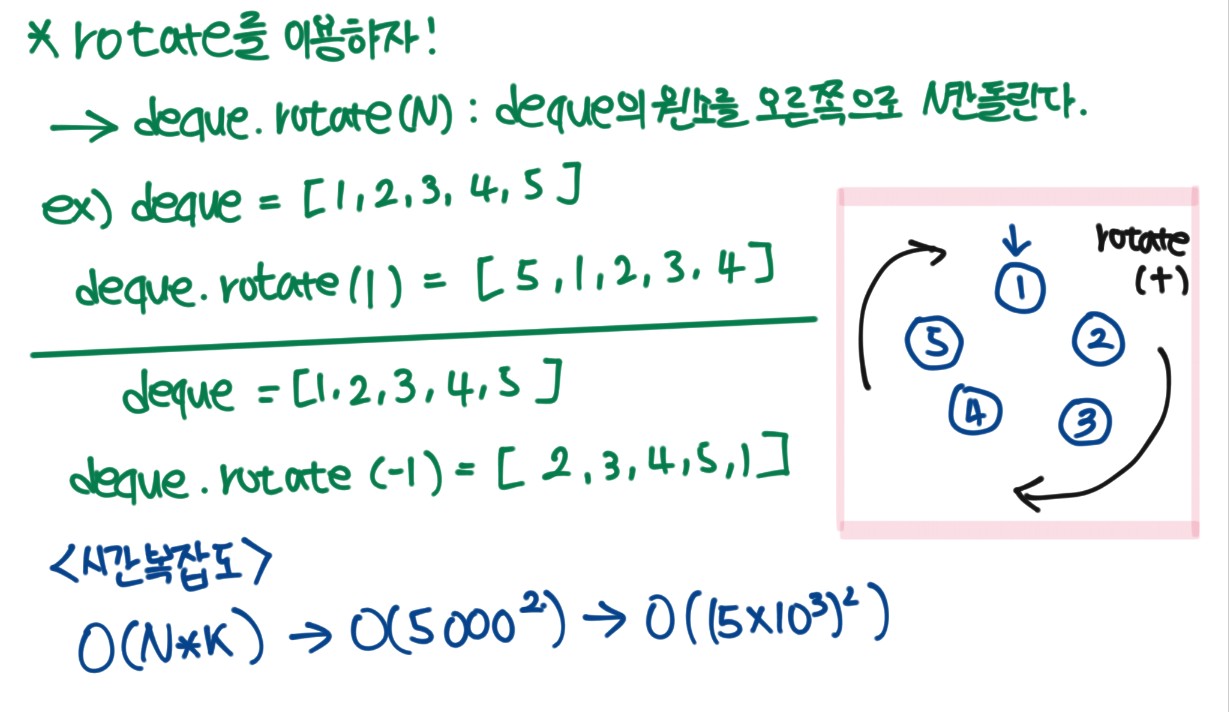 * rotate를 이용하자!
→ deque.rotate(N) : deque의 원소를 오른쪽으로 N칸 돌린다.
ex) deque = [1, 2, 3, 4, 5]
deque.rotate(1) = [5, 1, 2, 3, 4]
deque = [1, 2, 3, 4, 5]
deque.rotate(-1) = [2, 3, 4, 5, 1]
<시간복잡도>
O(N*K) → O(5000²) → O((5×10³)²)
rotate
(+)
1
5 2
4 3